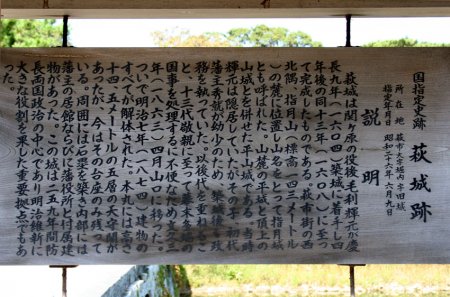 国指定史跡 萩城跡
所在地 萩市大字堀内字旧城
指定年月日 昭和二十六年六月九日
説明
萩城は関ヶ原の役後毛利輝元が慶
長九年(一六〇四)築城に着手し四
年後の同十三年(一六〇八)に至っ
て完成したものである。萩市街の西
北隅、指月山(標高一四三メートル
)の麓に位置し山名をとって指月城
とも呼ばれた。山麓の平城と頂上の
山城とを併せた平山城である。当時
輝元は隠居していたがその子初代
藩主秀就が幼少のため、築城後も政
務を執っていた。以後代を重ねるこ
と、十三代敬親に至って幕末多端の
国事を処理するに不便なため文久三
年(一八六三)四月山口に移った。
ついで明治七年(一八七四)建物の
すべてが解体された。本丸には高さ
十四・五メートルの五層の天守閣が
あったが、今はその台座のみ残って
いる。周囲には石塁を築き内部には
藩主の居館ならびに藩役所と付属建
物があった。この城は二五九年間防
長両国政治の中心であり明治維新に
大きな役割を果した重要拠点でもあ
った。